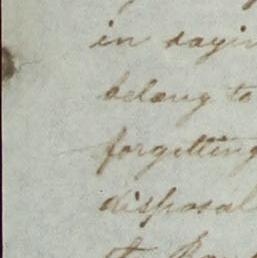 in sayin
belong to
forgetting
disposal